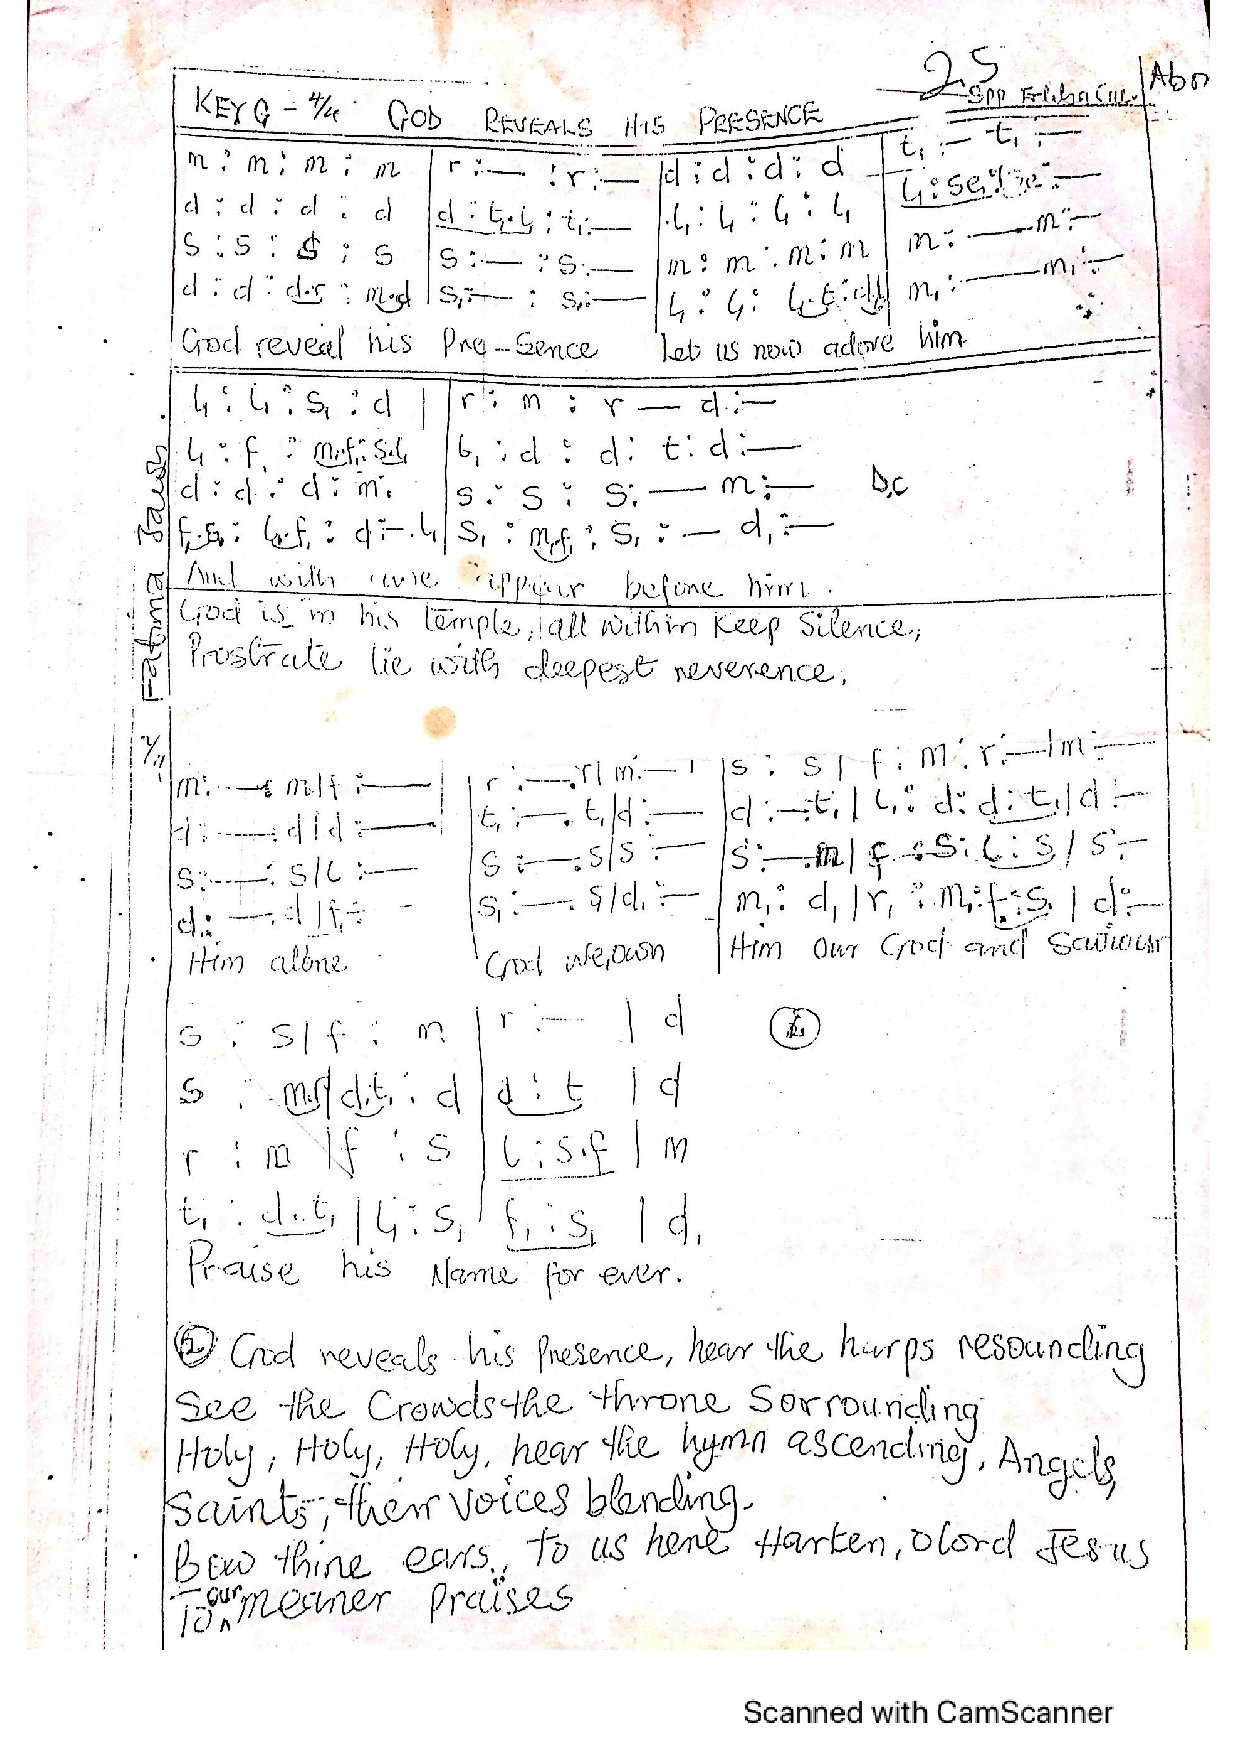 25
Abo
KEY G - 4/4 GOD REVEALS HIS PRESENCE
m : m : m : m | r :— : r :— | d : d : d : d | t₁ :— t₁ :—
d : d : d : d | d : t₁.l₁ : t₁ :— | l₁ : l₁ : l₁ : l₁ | l₁ : se₁
s : s : s : s | s :— : s :— | m : m : m : m | m :— m :—
d : d : d.r : m.d | s₁ :— : s₁ :— | l₁ : l₁ : l₁.t₁ : d | m₁ :— m₁ :—
God reveal his Pre-Sence Let us now adore him
l₁ : l₁ : s₁ : d | r : m : r — d :—
l₁ : f₁ : m₁.f₁ : s₁.l₁ | l₁ : d : d : t : d :—
d : d : d : m. | s : s : s :— m :— D.C
f₁.s₁ : l₁.f₁ : d :—. l₁ | s₁ : m₁.f₁ : s₁ :— d₁ :—
And with awe appear before him.
Fatima Jausb
God is in his temple, all within Keep Silence,
Prostrate lie with deepest reverence.
m :—: m | f :— | r :—. r | m :— | s : s | f : m : r :— | m :—
d :— : d | d :— | t₁ :—. t₁ | d :— | d :—. t₁ | l₁ : d : d : t₁ | d :—
s :—: s | l :— | s :—. s | s :— | s :—. m | f : s : l : s | s :—
d :—. d | f₁ :- | s₁ :—. s | d₁ :— | m₁ : d₁ | r₁ : m₁ : f₁ : s₁ | d :—
Him alone God we,own Him our God and Saviour
s : s | f : m | r :— | d
s : m.s | d.t₁ : d | d : t | d
r : m | f : s | l : s.f | m
t₁ : d.t₁ | l₁ : s₁ | f₁ : s₁ | d₁
Praise his Name for ever.
② God reveals his Presence, hear the harps resounding
See the Crowds the throne Sorrounding
Holy, Holy, Holy, hear the hymn ascending, Angels,
Saints, their voices blending.
Bow thine ears, To us here Harken, O Lord Jesus
To our meaner Praises
Scanned with CamScanner